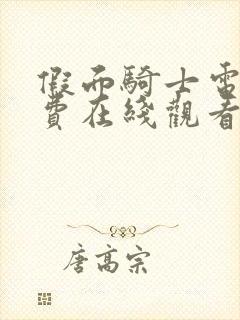 假面騎士電
費在綫觀看
唐高宗